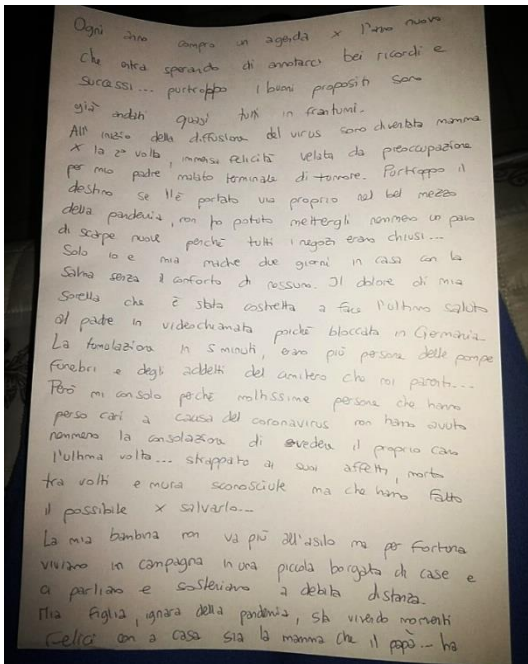 Ogni anno compro un agenda x l'anno nuovo
che entra sperando di annotarci bei ricordi e
successi... purtroppo i buoni propositi sono
già andati quasi tutti in frantumi.
All' inizio della diffusione del virus sono diventata mamma
x la 2° volta, immensa felicità velata da preoccupazione
per mio padre malato terminale di tumore. Purtroppo il
destino se l'è portato via proprio nel bel mezzo
della pandemia, non ho potuto mettergli nemmeno un paio
di scarpe nuove perché tutti i negozi erano chiusi...
Solo io e mia madre due giorni in casa con la
salma senza il conforto di nessuno. Il dolore di mia
sorella che è stata costretta a fare l'ultimo saluto
al padre in videochiamata poiché bloccata in Germania.
La tumulazione in 5 minuti, erano più persone delle pompe
funebri e degli addetti del cimitero che noi parenti...
Però mi consolo perché moltissime persone che hanno
perso cari a causa del coronavirus non hanno avuto
nemmeno la consolazione di vedere il proprio caro
l'ultima volta... strappato ai suoi affetti, morto
tra volti e mura sconosciute ma che hanno fatto
il possibile x salvarlo...
La mia bambina non va più all'asilo ma per fortuna
viviamo in campagna in una piccola borgata di case e
ci parliamo e sosteniamo a debita distanza.
Mia figlia, ignara della pandemia, sta vivendo momenti
felici con a casa sia la mamma che il papà... ha